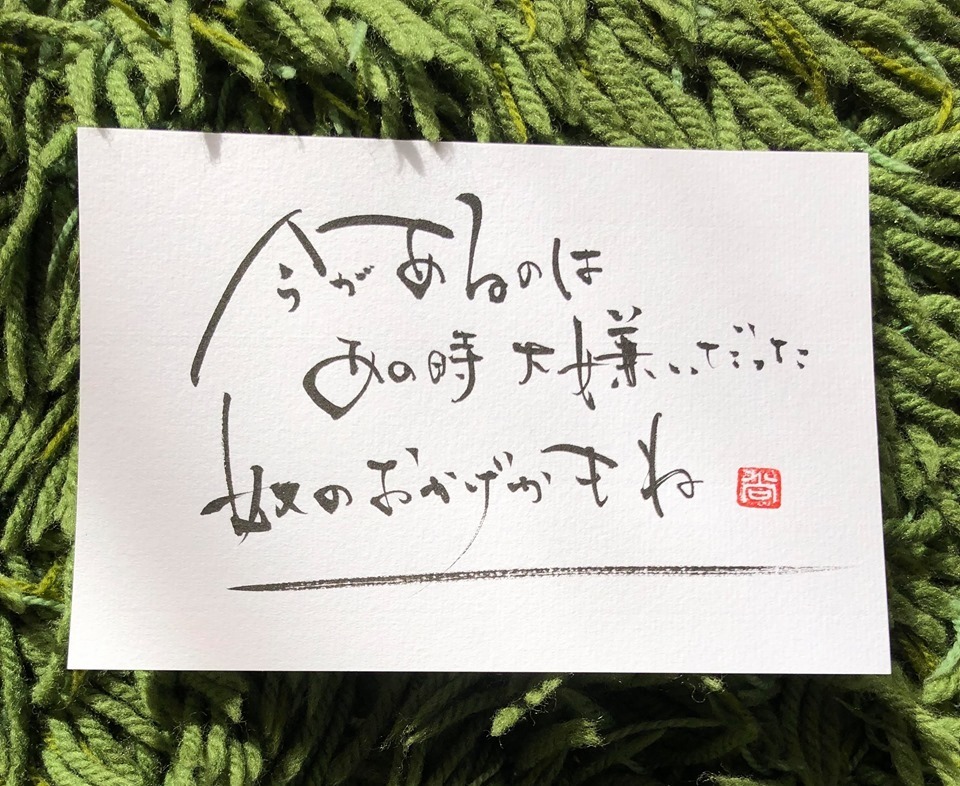 今があるのは
あの時大嫌いだった
奴のおかげかもね